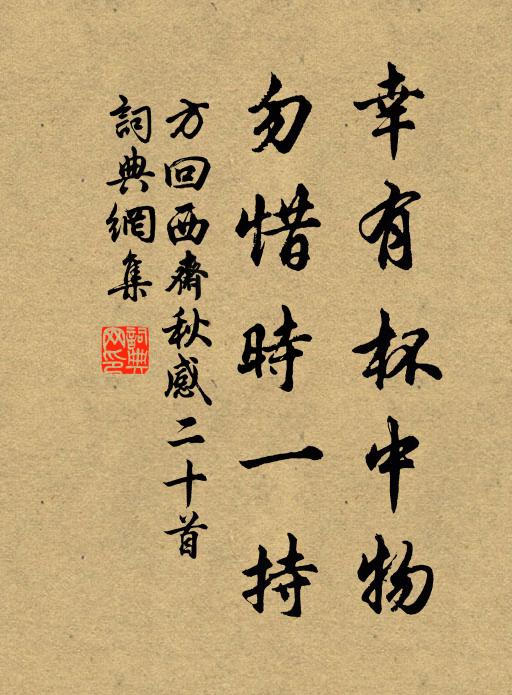 幸有杯中物
勿惜時一持
方回西齋秋感二十首
詞典網集
詞典網印